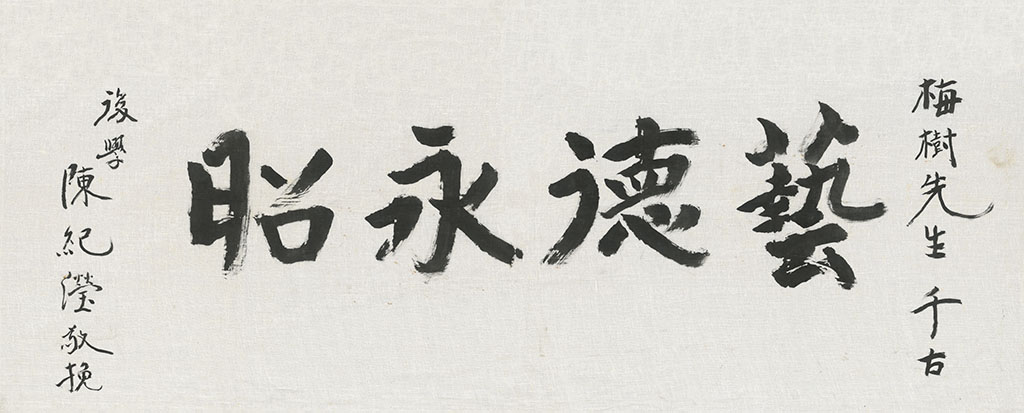 梅樹先生千古
藝德永昭
後學
陳紀瀅敬挽